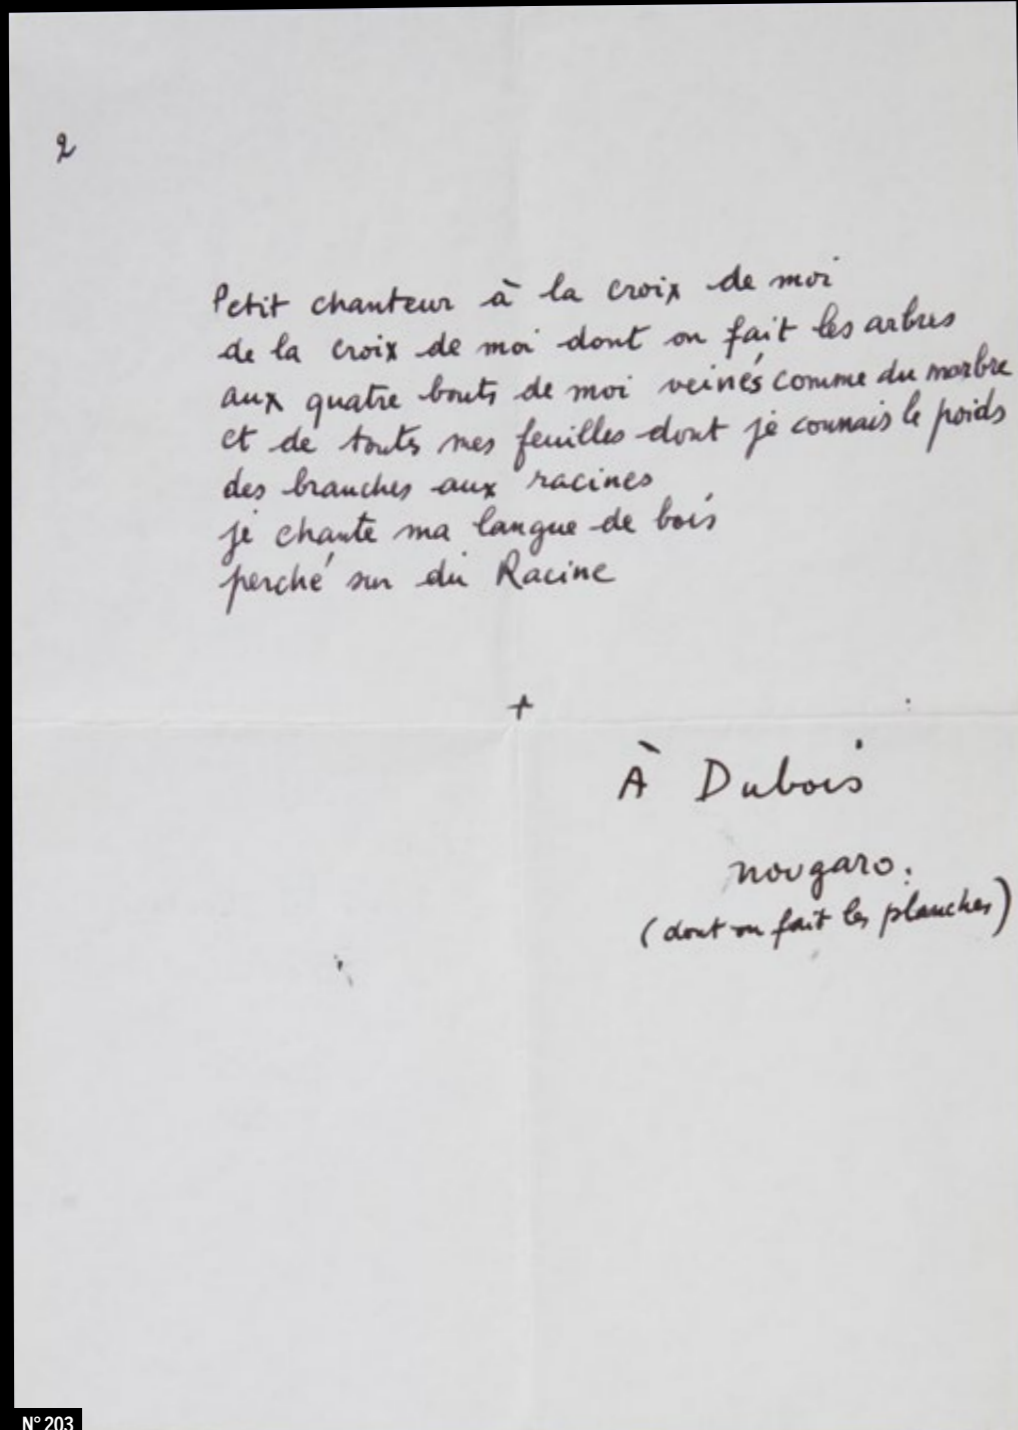 2
Petit chanteur à la croix de moi
de la croix de moi dont on fait les arbres
aux quatre bouts de moi veinés comme du marbre
et de toutes mes feuilles dont je connais le poids
des branches aux racines
je chante ma langue de bois
perché sur du Racine
+
À Dubois
Nougaro.
(dont on fait les planches)
N° 203